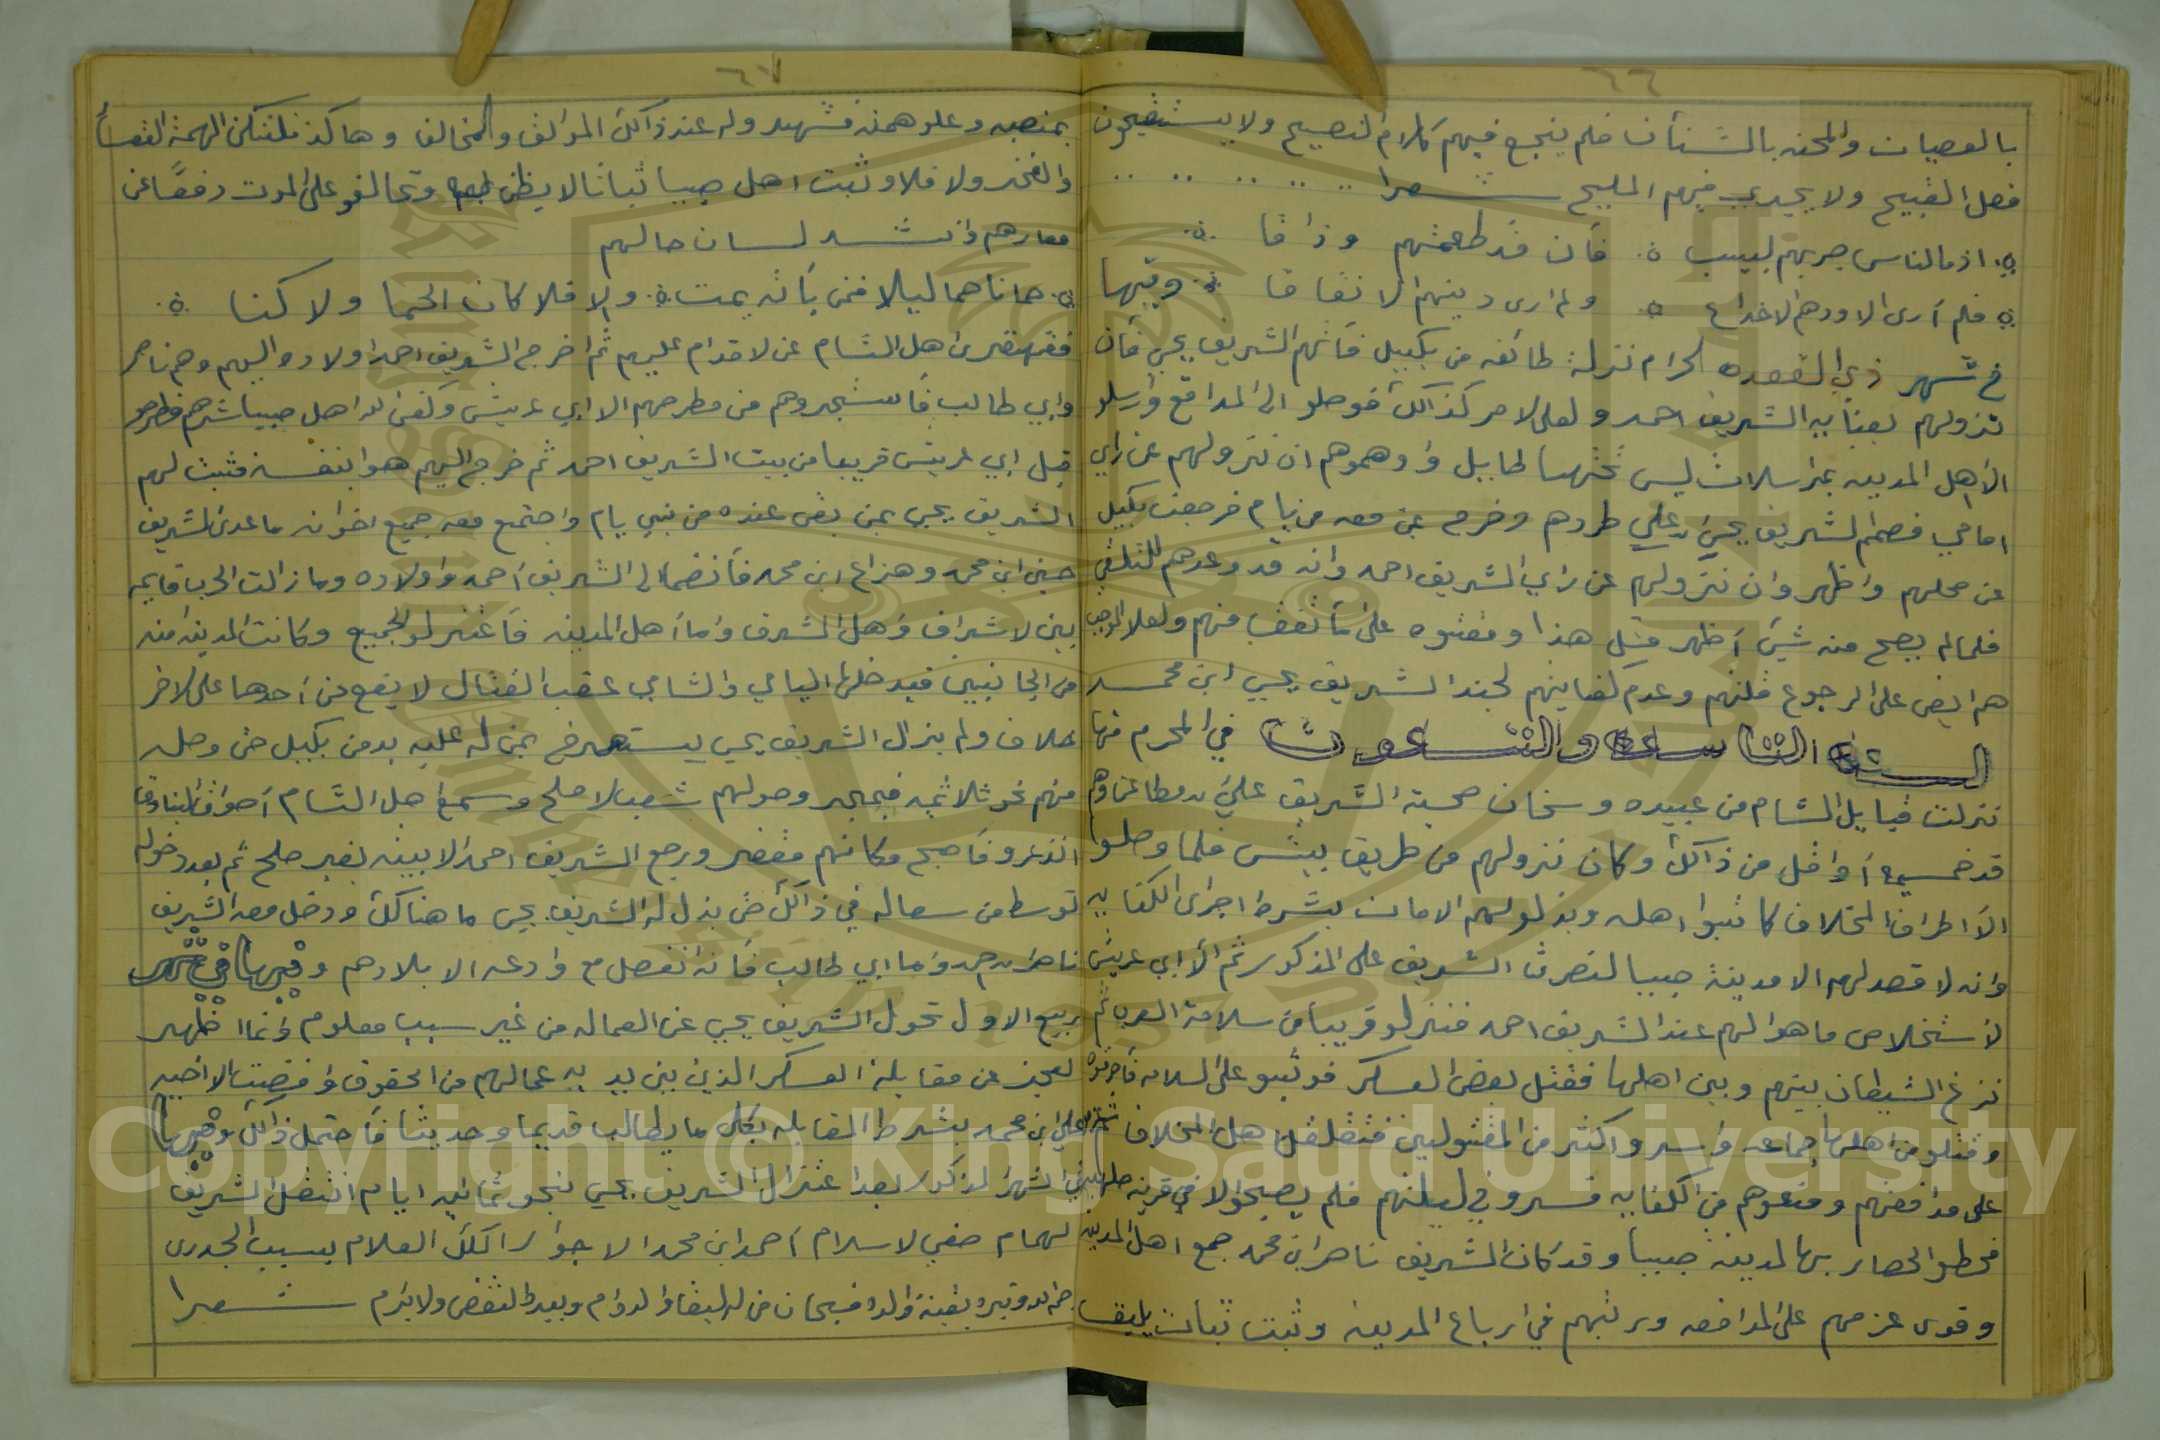 ٦٦
بالعصيان والمحنه بالشنأن فلم ينجع فيهم كلام النصيح ولا يستقبحون
فعل القبيح ولا يجدي فيهم المليح شعرا
اذ ما الناس جربهم لبيب فأن قد طعمتهم وذاقا
فلم أرى الا ودهم الا خداع ولم ارى دينهم الا نفاقا وفيها
في شهر ذي القعده الحرام نزلة طائفه من بكيل فأتهم الشريف يحي فأن
نزولهم بعنايه الشريف احمد ولعل الامر كذالك فوصلو الى المدافع وارسلو
الأ اهل المدينه بمراسلات ليس تحتها طايل واوهموهم ان نزولهم عن راي
امامي فصمم الشريف يحي على طردهم وخرج بمن معه من يام فرجعت بكيل
عن محلهم واظهر وان نزولهم عن راي الشريف احمد وانه قد وعدهم
فلما لم يصح منه شيئ أظهر فشل هذا ومقتوه على
هم ايض على الرجوع قلتهم وعدم كفايتهم لجند الشريف يحي ابن محمد
السنة التاسعة والتسعون في المحرم منها
نزلت قبايل الشام من عبيده وسنحان صحبة الشريف علي
قد خمسميه أو اقل من ذالك وكان نزولهم من طريق بيش فلما وصلو
الأ اطراف المخلاف كاتبوا اهله وبذلو لهم الامان بشرط اجرى الكفايه
وانه لا قصد لهم الا مدينة صبيا لنصرت الشريف على المذكور ثم الأ ابي عريش
لأستخلاص ما هوا لهم عند الشريف احمد فنزلو قريبا من سلامة العرب ثم
نزغ الشيطان بينهم وبين اهلها فقتل بعض العسكر فوثبو على السلامه
وقتلو من اهلها جماعه واسرو اكثر من المقتولين فتقلقل اهل المخلاف
على مدافعتهم ومنعوهم من الكفايه فسروي ليلتهم فلم يصبحوا الا في قرية
فحطو الحصار بها لمدينة صبيا وقد كان الشريف ناصر ابن محمد جمع اهل المدينه
وقوى عزمهم على المدافعه ورتبهم في ارباع المدينه وثبت ثبات يليق
٦٧
بمنصبه وعلو همته فشهد وله عند ذالك الموالف والمخالف وهاكذ فلتكن الهمة القعسأ
والفخر ولا فلا وثبت اهل صبيا ثباتا لا يظن بهم وتحالفو على الموت دفعًا عن
معارهم وانشد لسان حالهم
حمانا هما ليلا فمن يأته يمت والا فلا كان الحما ولا كنا
فقهقرى اهل الشام عن الاقدام عليهم ثم اخرج الشريف احمد اولاده اليهم وهم ناصر
وابي طالب فأستجروهم من مطرحهم الا ابي عريش وكفى الله اهل صبيا شرهم فطرحو
قبل ابي عريش قريبا من بيت الشريف احمد ثم خرج اليهم هوا بنفسه فثبت لهم
الشريف يحي بمن بقى عنده من بني يام واجتمع معه جميع اخوانه ما عدى الشريف
حسين ابن محمد وهزاع ابن محمد فأنضما الى الشريف أحمد واولاده وما زالت الحرب قايمه
بين لاشراف واهل الشرق واما أهل المدينه فأعتزلو الجميع وكانت المدينه امنه
من الجانبين فيدخلها اليامي والشامي عقب القتال لا يقع من أحدهما على الاخر
خلاف ولم يزال الشريف يحي يستصرخ بمن له عليه يد من بكيل حتى وصله
منهم نحو ثلاثميه فبمجرد وصولهم شعبا لا ملح وسمع اهل الشام أصوات البنادق
انذعرو فأصبح مكانهم مقفر ورجع الشريف احمد الا بيته بغير صلح ثم بعد دخوله
توسط من سعا له في ذالك حتى بذل له الشريف يحي ما هنالك ودخل معه الشريف
ناصر بن احمد واما ابي طالب فأنه انفصل مع وادعه الا بلادهم وفيها في شهر
ربيع الاول تحول الشريف يحي عن العماله من غير سبب معلوم وانما اظهر
لعجز عن مقابلة العسكر الذين بين يديه عمالهم من الحقوق وافضيت الا اخيه
علي ابن محمد بشرط المقابله بكل ما يطالب قديما وحديثا فأحتمل ذالك وفيها
في الشهر المذكور بعد اعتزال الشريف يحي بنحو ثمانيه ايام انتقل الشريف
لهمام صفي لاسلام أحمد ابن محمد الا جوار الملك العلام بسبب الجدرى
وقبره بقبة والده فسبحان من له البقا والدوام وبيده النقض ولابرام شعرا
Copyright © King Saud University